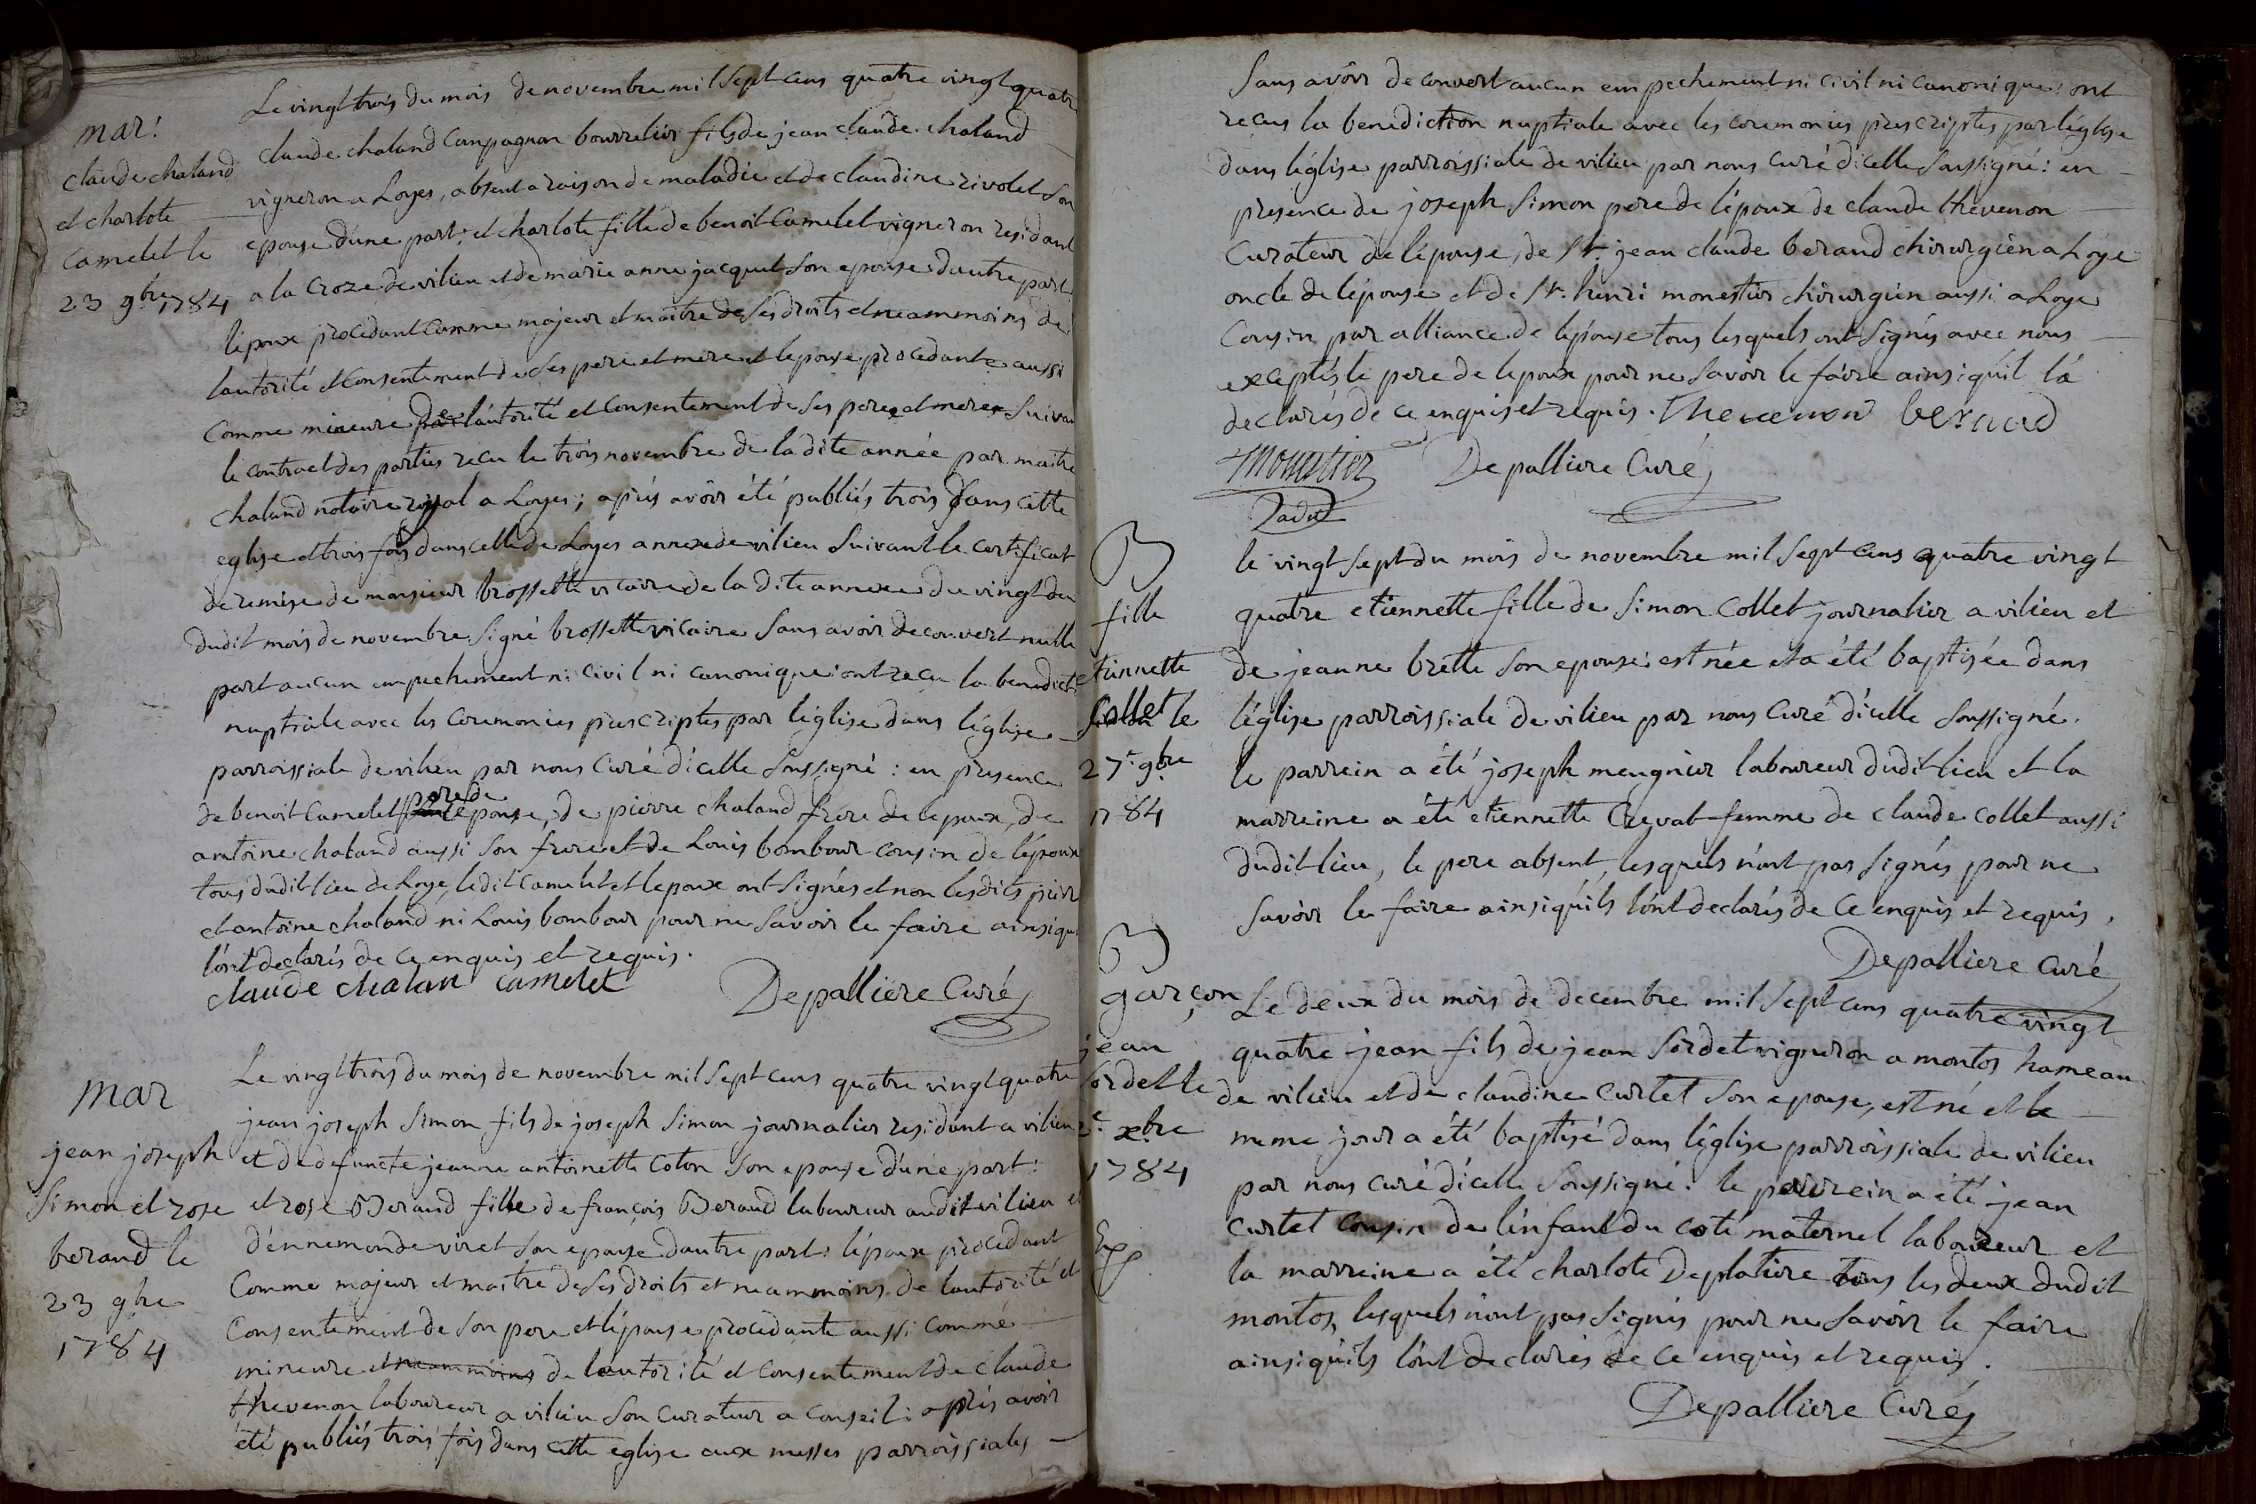 mar:
claude chaland
et charlote
Camelet le
23 9bre 1784
Le vingt trois du mois de novembre mil sept cens quatre vingt quatre
claude chaland Compagnon bourrelier fils de jean claude chaland
vigneron a Loyes, absent a raison de maladie et de claudine rivolet son
epouse d'une part: et charlote fille de benoit Camelet vigneron residant
a la Croze de vilieu et de marie anne jacquet son epouse d'autre part:
l'epoux procedant Comme majeur et maitre de ses droits et neammoins de
l'autorité et Consentement de ses pere et mere et l'epouse procedante aussi
Comme mineure de l'autorité et Consentement de ses pere et mere suivan
le contract des parties recu le trois novembre de la dite année par maitre
chaland notaire royal a Loyes; après avoir été publiés trois dans cette
eglise et trois fois dans celle de Loyes annexe de vilieu suivant le certificat
de remise de monsieur brossette vicaire de la dite annexe du vingt deu
dudit mois de novembre signé brossette vicaire sans avoir decouvert nulle
part aucun empechement ni civil ni canonique: ont recu la benedicti
nuptiale avec les Ceremonies prescriptes par l'église dans l'église
parroissiale de vilieu par nous Curé d'icelle soussigné: en presence
de benoit Camelet pere de l'epouse, de pierre chaland frere de l'epoux, de
antoine chaland aussi son frere et de Louis bombour cousin de l'époux
tous dudit lieu de Loye, ledit Camelet et l'epoux ont signés et non lesdits pierre
et antoine chaland ni Louis bombour pour ne savoir le faire ainsi qu
l'ont declarés de ce enquis et requis.
claude chalan camelet
Depalliere Curé
mar
jean joseph
Simon et rose
berand le
23 9bre
1784
Le vingt trois du mois de novembre mil sept cens quatre vingt quatre
jean joseph Simon fils de joseph Simon journalier residant a vilieu
et de defuncte jeanne antoinette Coton son epouse d'une part:
et rose Berand fille de françois Berand laboureur audit vilieu et
d'ennemonde viret son epouse d'autre part: l'époux procedant
Comme majeur et maitre de ses droits et neammoins de l'autorité et
Consentement de son pere et l'épouse procedante aussi Comme
mineure et neammoins de l'autorité et consentement de Claude
thevenon laboureur a vilieu son Curateur a Conseil: après avoir
été publiés trois fois dans cette eglise aux messes parroissiales
sans avoir decouvert aucun empechement ni civil ni canonique: ont
recus la benediction nuptiale avec les ceremonies prescriptes par l'église
dans l'église parroissiale de vilieu par nous Curé d'icelle soussigné: en
presence de joseph Simon pere de l'époux de claude thevenon
Curateur de l'épouse, de sr. jean claude berand chirurgien a Loye
oncle de l'épouse et de sr. henri monestier chirurgien aussi a Loye
Cousin par alliance de l'épouse tous lesquels ont signés avec nous
exceptés le pere de l'epoux pour ne savoir le faire ainsi qu'il l'a
declarés de ce enquis et requis. Thevenon beraud
Depalliere Curé
B
fille
etiennette
Collet le
27e 9bre
1784
le vingt sept du mois de novembre mil sept cens quatre vingt
quatre etiennette fille de Simon Collet journalier a vilieu et
de jeanne brette son epouse: est née et a été baptisée dans
l'église parroissiale de vilieu par nous Curé d'icelle soussigné.
le parrein a été joseph meugnier laboureur dudit lieu et la
marreine a été etiennette Crevat femme de Claude Collet aussi
dudit lieu, le pere absent, lesquels n'ont pas signés pour ne
savoir le faire ainsi qu'ils l'ont declarés de Ce enquis et requis.
Depalliere Curé
B
garçon
jean
Sordet le
2e xbre
1784
Le deux du mois de decembre mil sept cens quatre vingt
quatre jean fils de jean Sordet vigneron a montos hameau
de vilieu et de claudine Curtet son epouse, est né et le
meme jour a été baptisé dans l'église parroissiale de vilieu
par nous curé d'icelle soussigné: le parrein a été jean
Curtet Cousin de l'enfant du coté maternel laboureur et
la marreine a été charlote Deplatiere tous les deux dudit
montos, lesquels n'ont pas signés pour ne savoir le faire
ainsi qu'ils l'ont declarés de ce enquis et requis.
Depalliere Curé